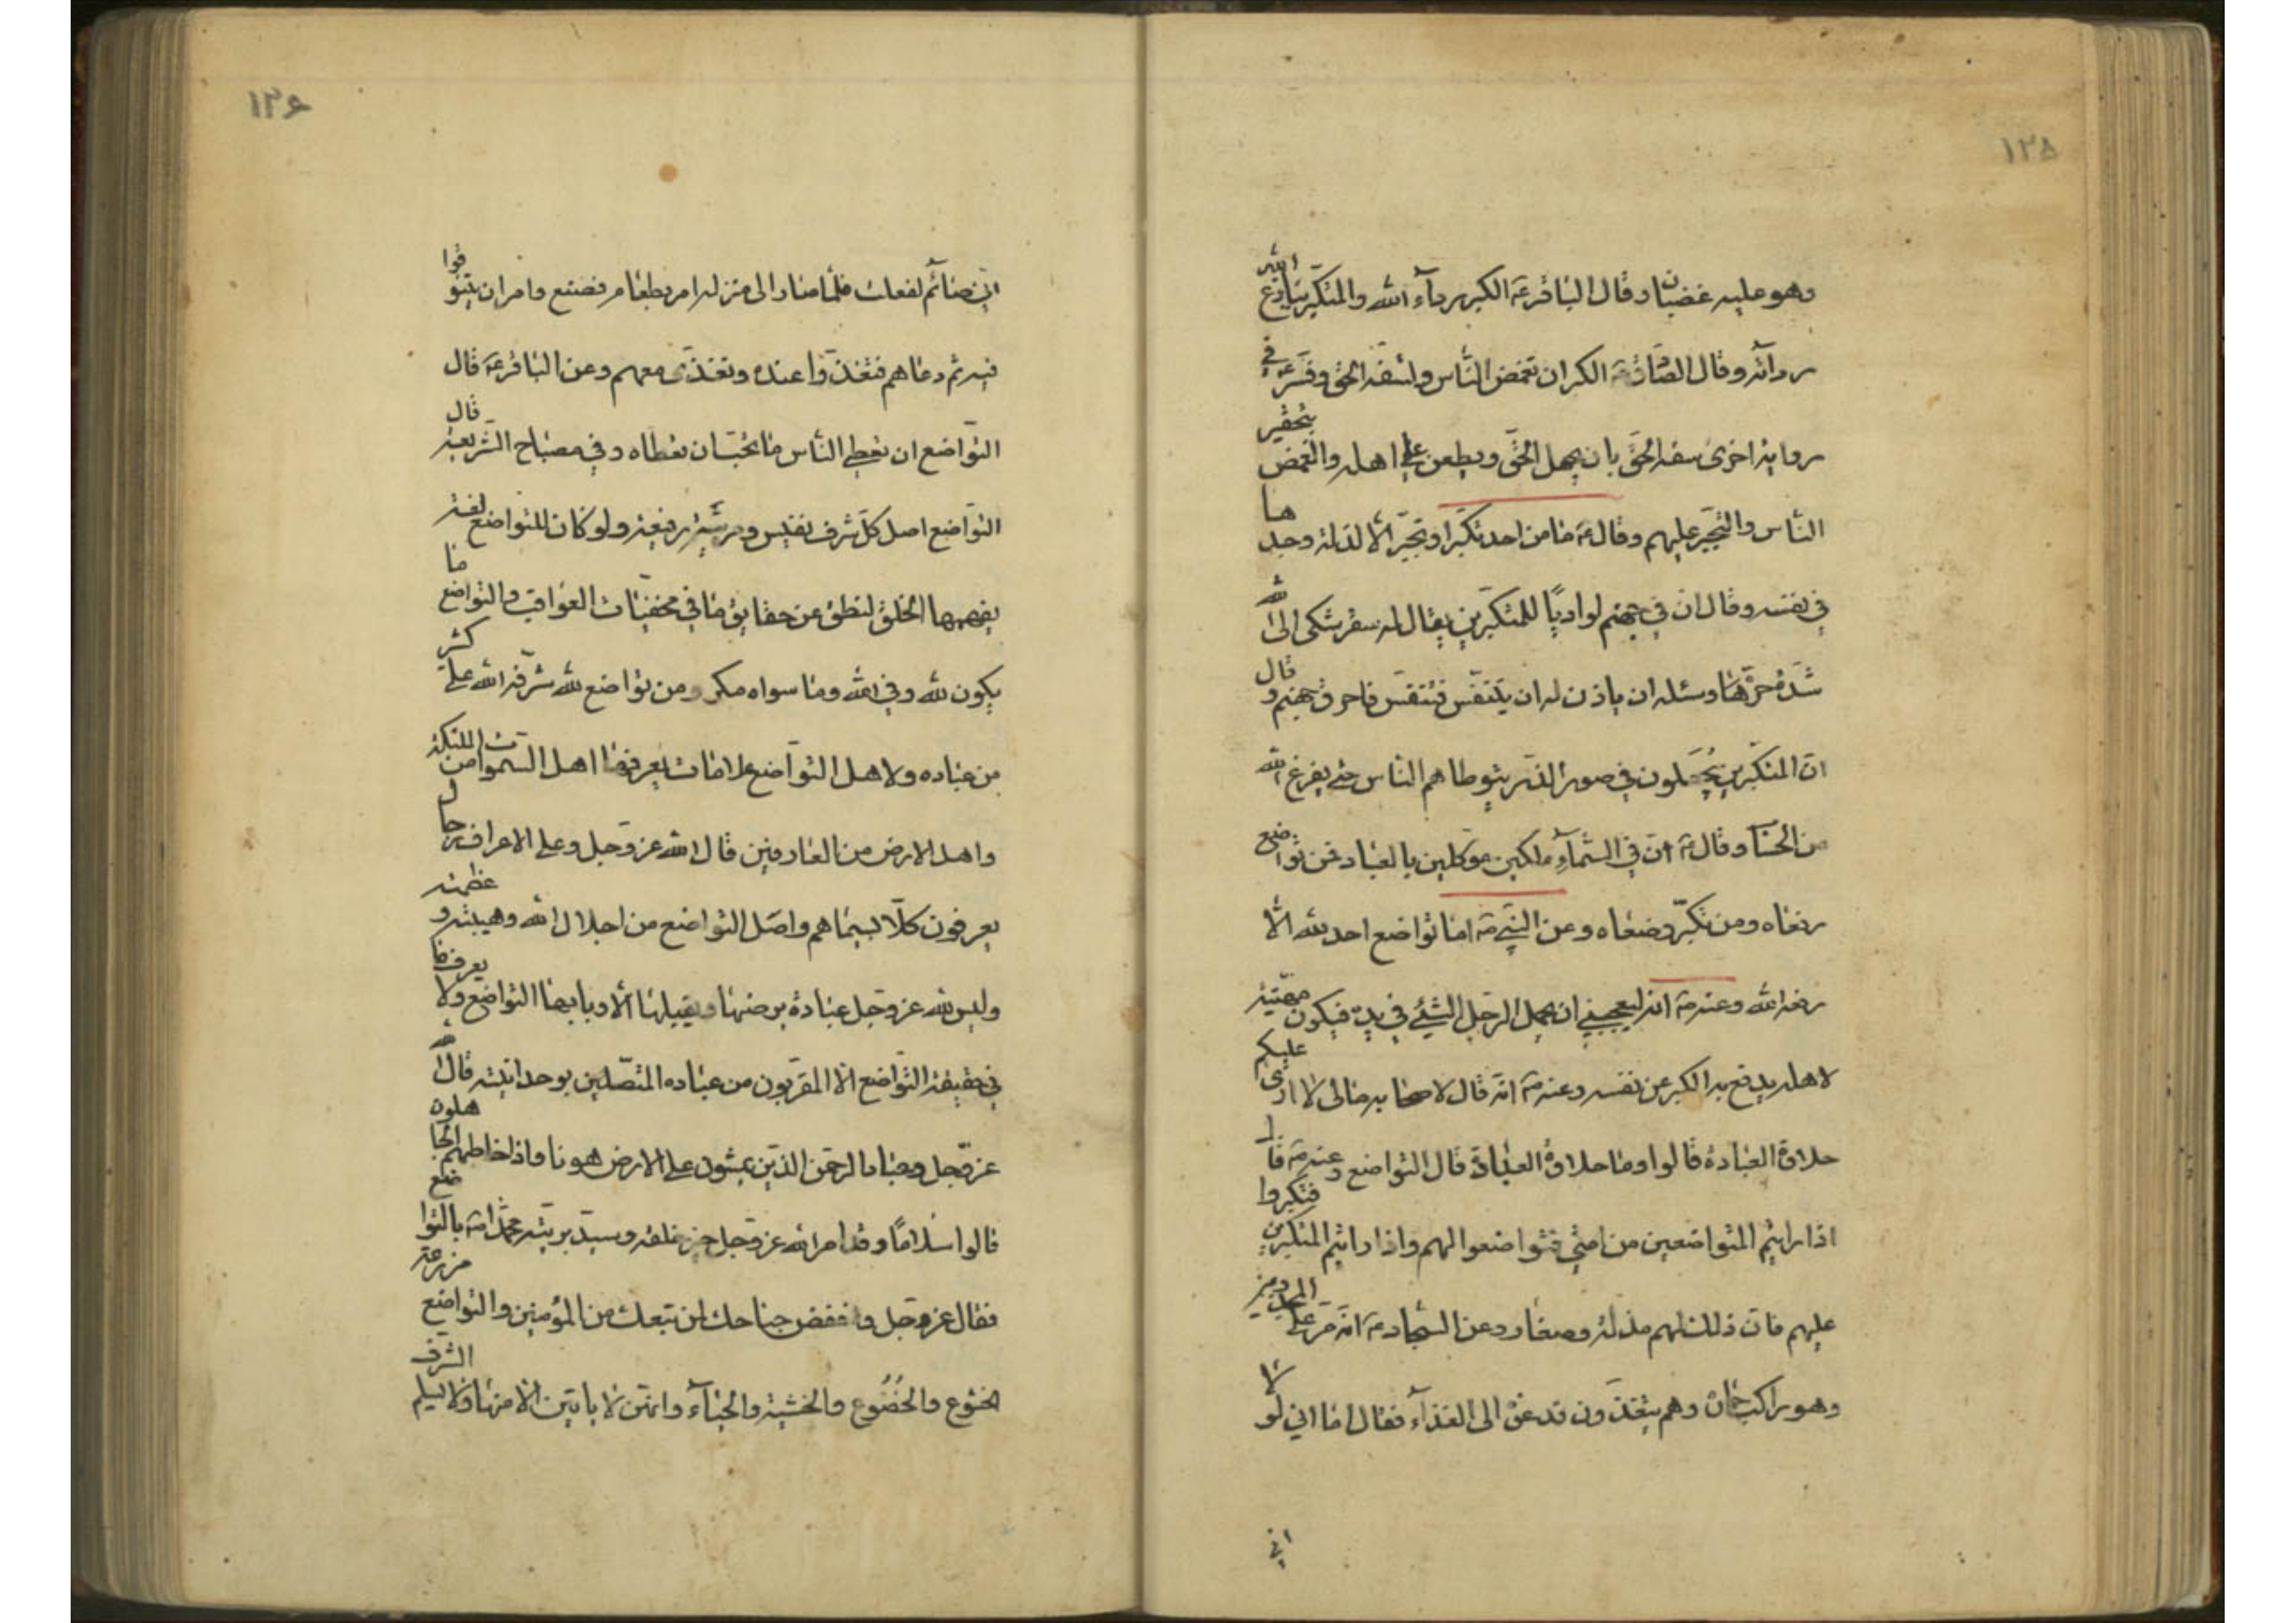 ١٢٥
وهو عليه غضبان وقال الباقر عَ الكبر رداء الله والمتكبر ينازع الله
ردائه وقال الصادق عَ الكبر ان تغمض الناس وتسفه الحق وفسّر عَ في
رواية اخرى سفه الحقّ بان يجهل الحقّ ويطعن على اهله والغمض بتحقير
الناس والتجبّر عليهم وقال عَ ما من احد تكبّر او تجبّر الّا لذلة وجدها
في نفسه وقال ان في جهنم لواديًا للمتكبّرين يقال له سقر شكى الى الله
شدّة حرّها وسئله ان ياذن له ان يتنفّس فتنفّس فاحرق جهنم وقال
انّ المتكبّرين يُجعلون في صور الذرّ يتوطاهم الناس حتى يفرغ الله
من الحساب وقال عَ انّ في السّمآءِ ملكين موكّلين بالعباد فمن تواضع
رفعاه ومن تكبّر وضعاه وعن النبي صَ اما تواضع احد لله الّا
رفعه الله وعنه صَ انه ليعجبني ان يحمل الرّجل الشيئ في يده فيكون مهنّة
لاهله يدفع به الكبر عن نفسه وعنه صَ انّه قال لاصحابه مالى لا ارى عليكم
حلاوة العبادة قالوا وما حلاوة العبادة قال التواضع وعنه صَ قال
اذا رايتم المتواضعين من امتي فتواضعوا لهم واذا رايتم المتكبّرين فتكبروا
عليهم فان ذلك لهم مذلة وصغار وعن السّجاد عَ انّه مرّ على المجذومين
وهو راكب حماره وهم يتغذّون فدعوه الى الغذآء فقال اما اني لولا
اني
١٢٦
اني صائم لفعلت فلما صار الى منزله امر بطعام فصنع وامر ان يتنوقوا
فيه ثم دعاهم فتغذّوا عنده وتغذّى معهم وعن الباقر عَ قال
التواضع ان تعطي الناس ما تحبّ ان تعطاه وفي مصباح الشّريعة قال
التواضع اصل كلّ شرف نفيس ومرتبة رفيعة ولو كان للتواضع لغة
يفهمها الخلق لنطق عن حقايق ما في مخفيّات العواقب والتواضع ما
يكون لله وفي الله وما سواه مكر ومن تواضع لله شرّفه الله على كثير
من عباده ولاهل التواضع علامات يعرفها اهل السّموات من الملئكة
واهل الارض من العارفين قال الله عز وجل وعلى الاعراف رجال
يعرفون كلّا بسيماهم واصل التواضع من اجلال الله وهيبته وعظمته
وليس لله عز وجل عبادة يرضيها ويقبلها الّا وبابها التواضع ولا يعرف ما
في حقيقة التّواضع الّا المقرّبون من عباده المتّصلين بوحدانيته قال الله
عزّ وجل وعباد الرحمن الذين يمشون على الارض هونا واذا خاطبهم الجاهلون
قالوا سلامًا وقد امر الله عزّ وجل اعز خلقه وسيّد بريته محمّد صَ بالتواضع
فقال عز وجل واخفض جناحك لمن تبعك من المؤمنين والتواضع مزرعة
الخشوع والخُضُوع والخشية والحيآء وانهن لا ياتين الّا منها ولا يسلم الشّرف